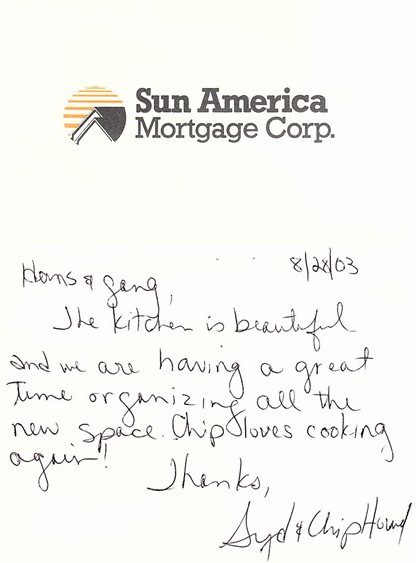 Sun America
Mortgage Corp.
8/28/03
Hans & gang,
The kitchen is beautiful
and we are having a great
time organizing all the
new space. Chip loves cooking
again!
Thanks,
Syd & Chip